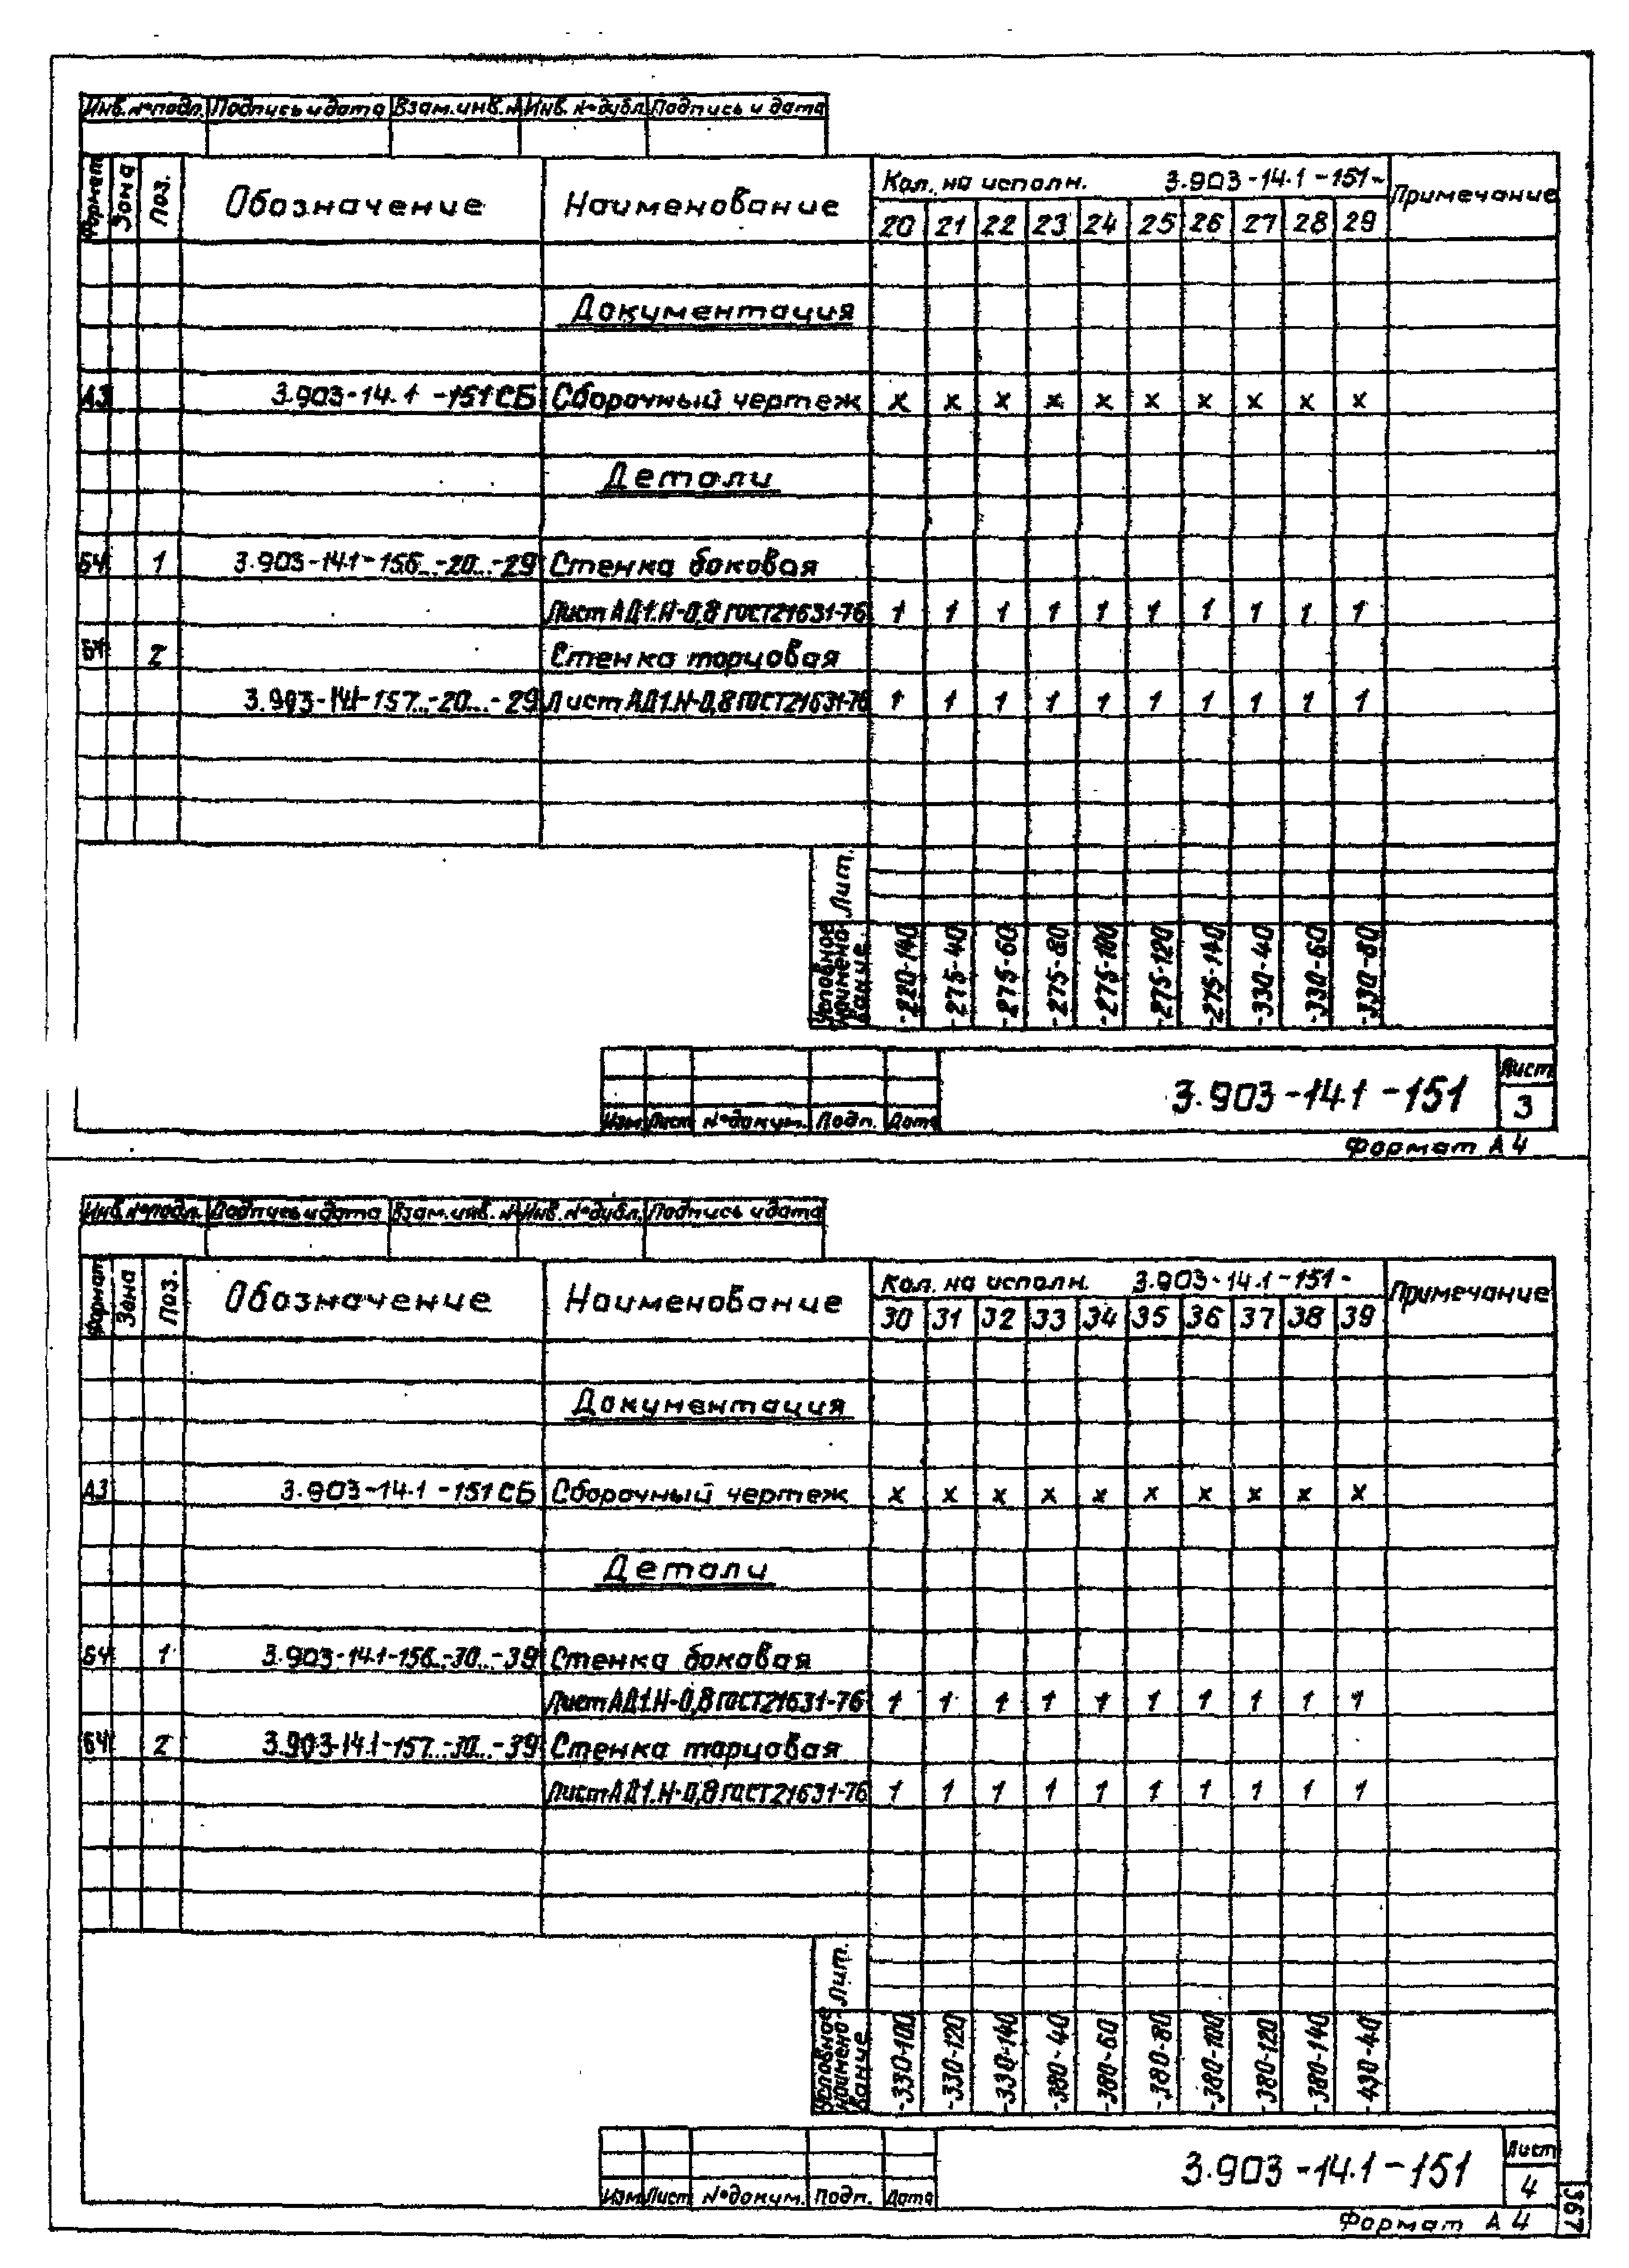 Инв. № подл. Подпись и дата Взам. инв. № Инв. № дубл. Подпись и дата
Формат Зона Поз. Обозначение Наименование Кол. на исполн. 3.903-14.1-151- Примечание
20 21 22 23 24 25 26 27 28 29
Документация
А3 3.903-14.1-151СБ Сборочный чертеж х х х х х х х х х х
Детали
БЧ 1 3.903-14.1-156..-20..-29 Стенка боковая
Лист АД1.Н-0,8 ГОСТ21631-76 1 1 1 1 1 1 1 1 1 1
БЧ 2 Стенка торцовая
3.903-14.1-157..-20..-29 Лист АД1.Н-0,8 ГОСТ21631-76 1 1 1 1 1 1 1 1 1 1
Лит.
Условное наименование -220-140 -275-40 -275-60 -275-80 -275-100 -275-120 -275-140 -330-40 -330-60 -330-80
3.903-14.1-151 Лист
3
Изм Лист № докум. Подп. Дата
Формат А4
Инв. № подл. Подпись и дата Взам. инв. № Инв. № дубл. Подпись и дата
Формат Зона Поз. Обозначение Наименование Кол. на исполн. 3.903-14.1-151- Примечание
30 31 32 33 34 35 36 37 38 39
Документация
А3 3.903-14.1-151СБ Сборочный чертеж х х х х х х х х х х
Детали
БЧ 1 3.903-14.1-156..-30..-39 Стенка боковая
Лист АД1.Н-0,8 ГОСТ21631-76 1 1 1 1 1 1 1 1 1 1
БЧ 2 3.903-14.1-157..-30..-39 Стенка торцовая
Лист АД1.Н-0,8 ГОСТ21631-76 1 1 1 1 1 1 1 1 1 1
Лит.
Условное наименование -330-100 -330-120 -330-140 -380-40 -380-60 -380-80 -380-100 -380-120 -380-140 -430-40
3.903-14.1-151 Лист
4
Изм Лист № докум. Подп. Дата
Формат А4
367